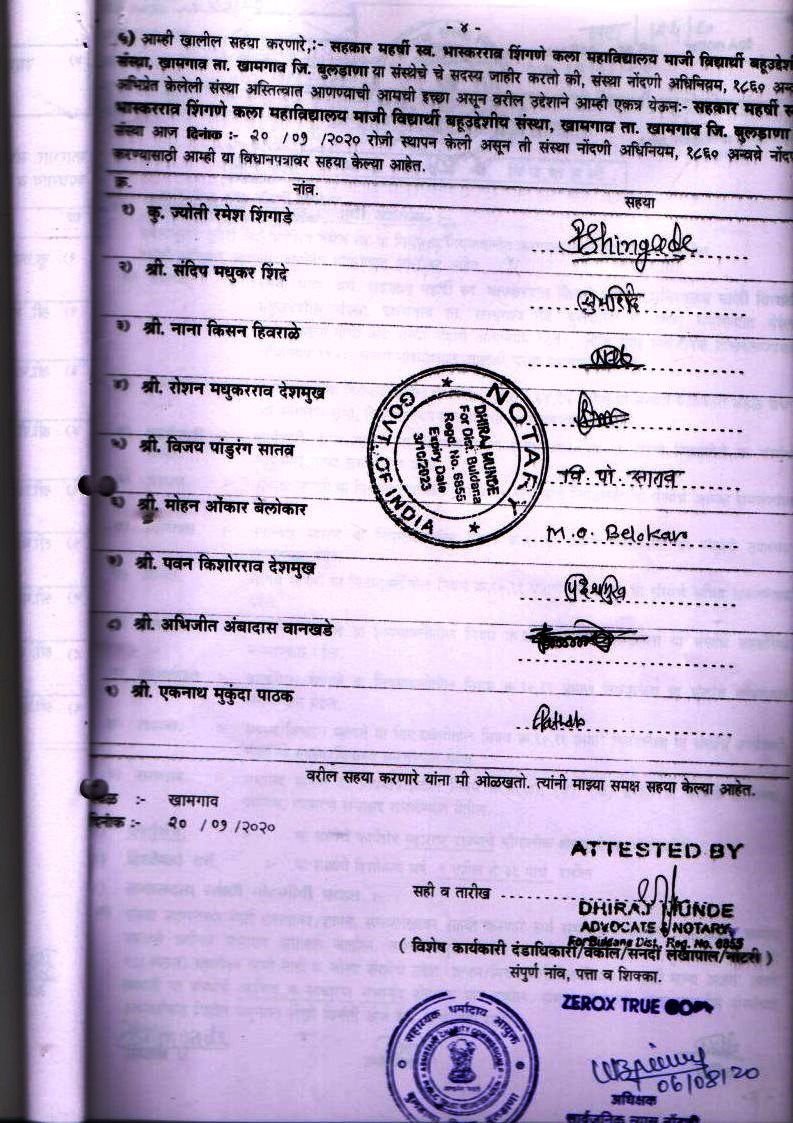 - ४ -
६) आम्ही खालील सहया करणारे,:- सहकार महर्षी स्व. भास्करराव शिंगणे कला महाविद्यालय माजी विद्यार्थी बहूउद्देशी
संस्था, खामगाव ता. खामगाव जि. बुलडाणा या संस्थेचे चे सदस्य जाहीर करतो की, संस्था नोंदणी अधिनियम, १८६० अन्व
अभिप्रेत केलेली संस्था अस्तित्वात आणण्याची आमची इच्छा असून वरील उद्देशाने आम्ही एकत्र येऊन:- सहकार महर्षी स
भास्करराव शिंगणे कला महाविद्यालय माजी विद्यार्थी बहूउद्देशीय संस्था, खामगाव ता. खामगाव जि. बुलडाणा
संस्था आज दिनांक :- २० / ०१ /२०२० रोजी स्थापन केली असून ती संस्था नोंदणी अधिनियम, १८६० अन्वये नोंद
करण्यासाठी आम्ही या विधानपत्रावर सहया केल्या आहेत.
क्र. नांव. सहया
१) कु. ज्योती रमेश शिंगाडे Rshingade
२) श्री. संदिप मधुकर शिंदे
३) श्री. नाना किसन हिवराळे
४) श्री. रोशन मधुकरराव देशमुख
५) श्री. विजय पांडुरंग सातव वि. पां. सातव
६) श्री. मोहन ओंकार बेलोकार M.O. Belokar
७) श्री. पवन किशोरराव देशमुख
८) श्री. अभिजीत अंबादास वानखडे
९) श्री. एकनाथ मुकुंदा पाठक Pathak
NOTARY
DHIRAJ MUNDE
For Dist. Buldana
Regd. No. 6855
Expiry Date
3/10/2023
GOVT. OF INDIA
वरील सहया करणारे यांना मी ओळखतो. त्यांनी माझ्या समक्ष सहया केल्या आहेत.
:- खामगाव
दिनांक :- २० / ०१ /२०२०
ATTESTED BY
सही व तारीख
DHIRAJ MUNDE
ADVOCATE & NOTARY
For Buldana Dist. Reg. No. 6855
( विशेष कार्यकारी दंडाधिकारी/वकील/सनदी लेखापाल/नोटरी )
संपुर्ण नांव, पत्ता व शिक्का.
ZEROX TRUE COPY
सहाय्यक धर्मादाय आयुक्त
06/08/20
अधिक्षक
सार्वजनिक न्यास नोंदणी